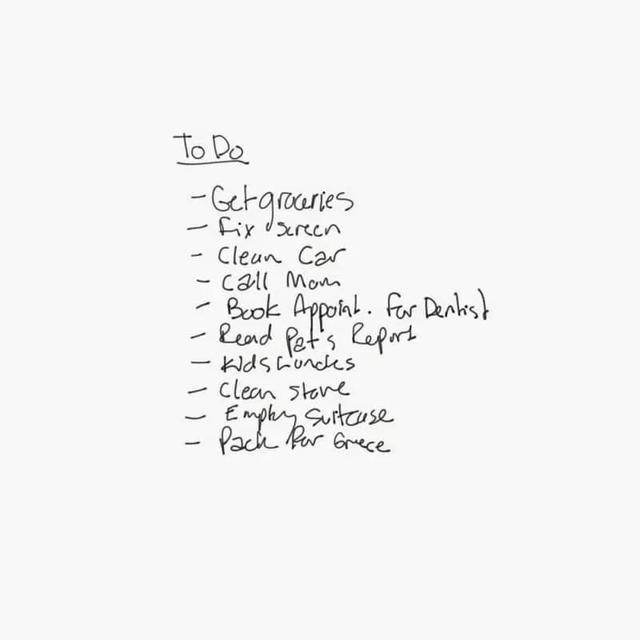 To Do
- Get groceries
- Fix screen
- Clean Car
- Call Mom
- Book Appoint. for Dentist
- Read Pat's Report
- Kids Lunches
- Clean Stove
- Empty Suitcase
- Pack for Greece